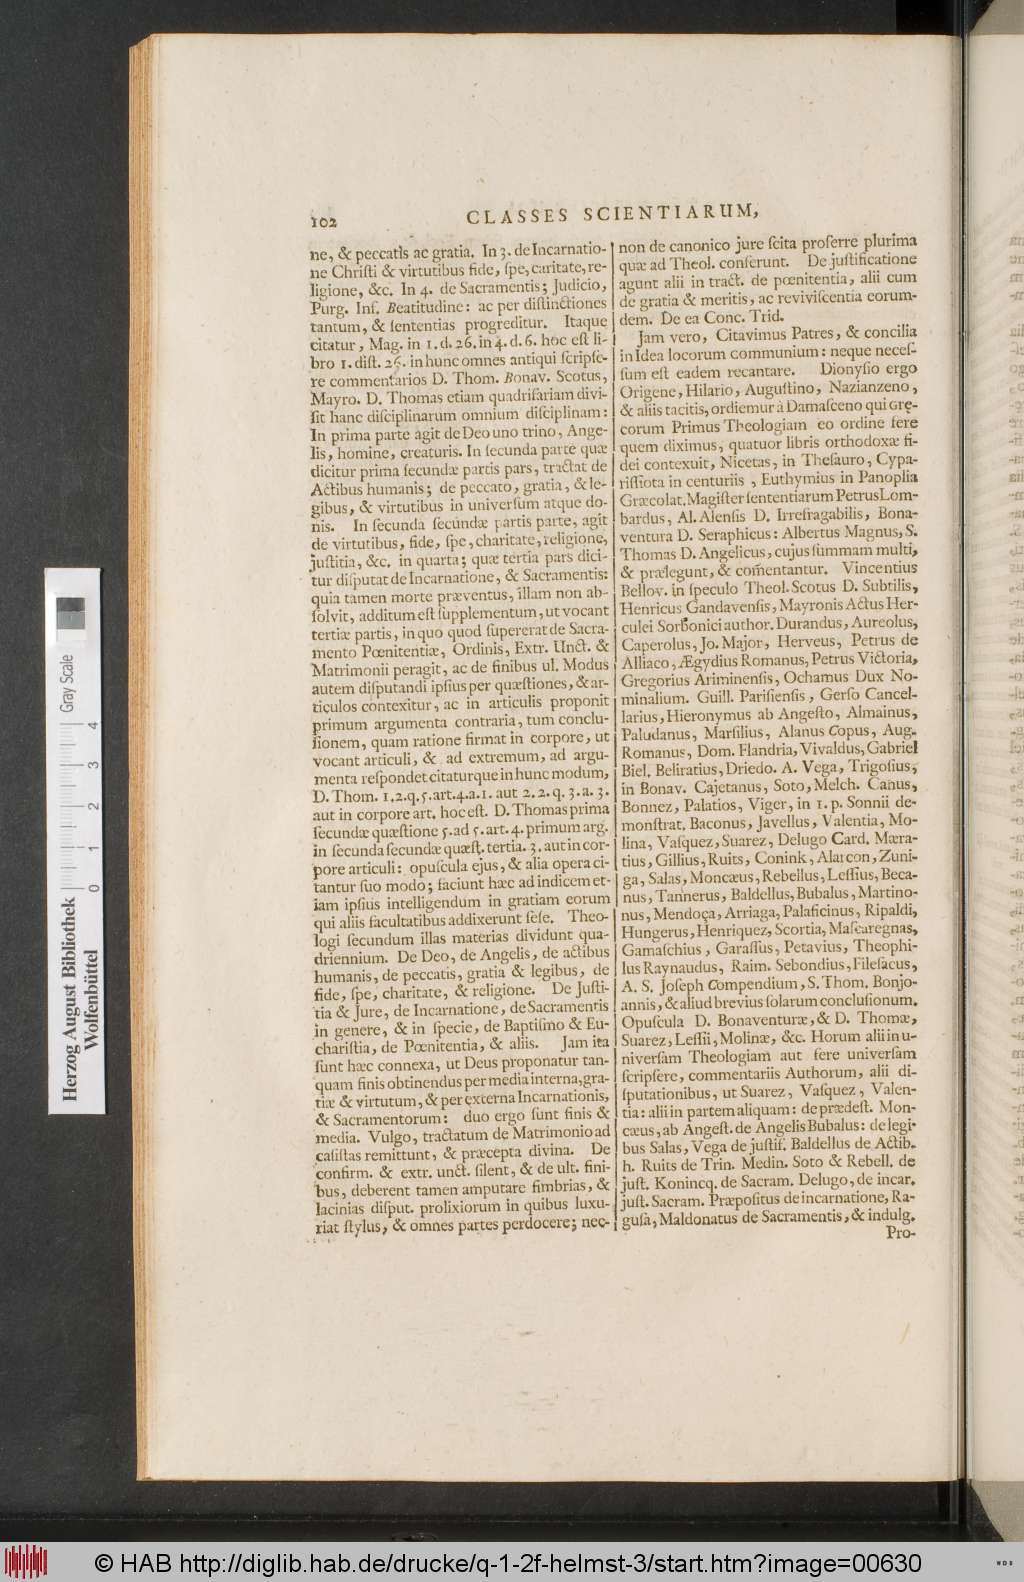 102
CLASSES SCIENTIARUM,
ne, & peccatis ac gratia. In 3. de Incarnatio-
ne Chriſti & virtutibus fide, ſpe, caritate, re-
ligione, &c. In 4. de Sacramentis; Judicio,
Purg. Inf. Beatitudine: ac per diſtinctiones
tantum, & ſententias progreditur. Itaque
citatur, Mag. in 1. d. 26. in 4. d. 6. hoc eſt li-
bro 1. diſt. 26. in hunc omnes antiqui ſcripſe-
re commentarios D. Thom. Bonav. Scotus,
Mayro. D. Thomas etiam quadrifariam divi-
ſit hanc diſciplinarum omnium diſciplinam:
In prima parte agit de Deo uno trino, Ange-
lis, homine, creaturis. In ſecunda parte quæ
dicitur prima ſecundæ partis pars, tractat de
Actibus humanis; de peccato, gratia, & le-
gibus, & virtutibus in univerſum atque do-
nis. In ſecunda ſecundæ partis parte, agit
de virtutibus, fide, ſpe, charitate, religione,
juſtitia, &c. in quarta; quæ tertia pars dici-
tur diſputat de Incarnatione, & Sacramentis:
quia tamen morte præventus, illam non ab-
ſolvit, additum eſt ſupplementum, ut vocant
tertiæ partis, in quo quod ſupererat de Sacra-
mento Pœnitentiæ, Ordinis, Extr. Unct. &
Matrimonii peragit, ac de finibus ul. Modus
autem diſputandi ipſius per quæſtiones, & ar-
ticulos contexitur, ac in articulis proponit
primum argumenta contraria, tum conclu-
ſionem, quam ratione firmat in corpore, ut
vocant articuli, & ad extremum, ad argu-
menta reſpondet citaturque in hunc modum,
D. Thom. 1. 2. q. 5. art. 4. a. 1. aut 2. 2. q. 3. a. 3.
aut in corpore art. hoc eſt. D. Thomas prima
ſecundæ quæſtione 5. ad 5. art. 4. primum arg.
in ſecunda ſecundæ quæſt. tertia. 3. aut in cor-
pore articuli: opuſcula ejus, & alia opera ci-
tantur ſuo modo; faciunt hæc ad indicem et-
iam ipſius intelligendum in gratiam eorum
qui aliis facultatibus addixerunt ſeſe. Theo-
logi ſecundum illas materias dividunt qua-
driennium. De Deo, de Angelis, de actibus
humanis, de peccatis, gratia & legibus, de
fide, ſpe, charitate, & religione. De Juſti-
tia & Jure, de Incarnatione, de Sacramentis
in genere, & in ſpecie, de Baptiſmo & Eu-
chariſtia, de Pœnitentia, & aliis. Jam ita
ſunt hæc connexa, ut Deus proponatur tan-
quam finis obtinendus per media interna, gra-
tiæ & virtutum, & per externa Incarnationis,
& Sacramentorum: duo ergo ſunt finis &
media. Vulgo, tractatum de Matrimonio ad
caſiſtas remittunt, & præcepta divina. De
confirm. & extr. unct. ſilent, & de ult. fini-
bus, deberent tamen amputare fimbrias, &
lacinias diſput. prolixiorum in quibus luxu-
riat ſtylus, & omnes partes perdocere; nec-
non de canonico jure ſcita proferre plurima
quæ ad Theol. conferunt. De juſtificatione
agunt alii in tract. de pœnitentia, alii cum
de gratia & meritis, ac reviviſcentia eorum-
dem. De ea Conc. Trid.
Jam vero, Citavimus Patres, & concilia
in Idea locorum communium: neque neceſ-
ſum eſt eadem recantare. Dionyſio ergo
Origene, Hilario, Auguſtino, Nazianzeno,
& aliis tacitis, ordiemur à Damaſceno qui Gre-
corum Primus Theologiam eo ordine fere
quem diximus, quatuor libris orthodoxæ fi-
dei contexuit, Nicetas, in Theſauro, Cypa-
riſſiota in centuriis, Euthymius in Panoplia
Græcolat. Magiſter ſententiarum Petrus Lom-
bardus, Al. Alenſis D. Irrefragabilis, Bona-
ventura D. Seraphicus: Albertus Magnus, S.
Thomas D. Angelicus, cujus ſummam multi,
& prælegunt, & com̃entantur. Vincentius
Bellov. in ſpeculo Theol. Scotus D. Subtilis,
Henricus Gandavenſis, Mayronis Actus Her-
culei Sorbonici author. Durandus, Aureolus,
Caperolus, Jo. Major, Herveus, Petrus de
Alliaco, Ægydius Romanus, Petrus Victoria,
Gregorius Ariminenſis, Ochamus Dux No-
minalium. Guill. Pariſienſis, Gerſo Cancel-
larius, Hieronymus ab Angeſto, Almainus,
Paludanus, Marſilius, Alanus Copus, Aug.
Romanus, Dom. Flandria, Vivaldus, Gabriel
Biel. Beliratius, Driedo. A. Vega, Trigoſius,
in Bonav. Cajetanus, Soto, Melch. Canus,
Bonnez, Palatios, Viger, in 1. p. Sonnii de-
monſtrat. Baconus, Javellus, Valentia, Mo-
lina, Vaſquez, Suarez, Delugo Card. Mæra-
tius, Gillius, Ruits, Conink, Alarcon, Zuni-
ga, Salas, Moncæus, Rebellus, Leſſius, Beca-
nus, Tannerus, Baldellus, Bubalus, Martino-
nus, Mendoça, Arriaga, Palaficinus, Ripaldi,
Hungerus, Henriquez, Scortia, Maſcaregnas,
Gamaſchius, Garaſſus, Petavius, Theophi-
lus Raynaudus, Raim. Sebondius, Fileſacus,
A. S. Joſeph Compendium, S. Thom. Bonjo-
annis, & aliud brevius ſolarum concluſionum.
Opuſcula D. Bonaventuræ, & D. Thomæ,
Suarez, Leſſii, Molinæ, &c. Horum alii in u-
niverſam Theologiam aut fere univerſam
ſcripſere, commentariis Authorum, alii di-
ſputationibus, ut Suarez, Vaſquez, Valen-
tia: alii in partem aliquam: de prædeſt. Mon-
cæus, ab Angeſt. de Angelis Bubalus: de legi-
bus Salas, Vega de juſtif. Baldellus de Actib.
h. Ruits de Trin. Medin. Soto & Rebell. de
juſt. Konincq. de Sacram. Delugo, de incar.
juſt. Sacram. Præpoſitus de incarnatione, Ra-
guſa, Maldonatus de Sacramentis, & indulg.
Pro-
Herzog August Bibliothek
Wolfenbüttel
Gray Scale
0 1 2 3 4
© HAB http://diglib.hab.de/drucke/q-1-2f-helmst-3/start.htm?image=00630